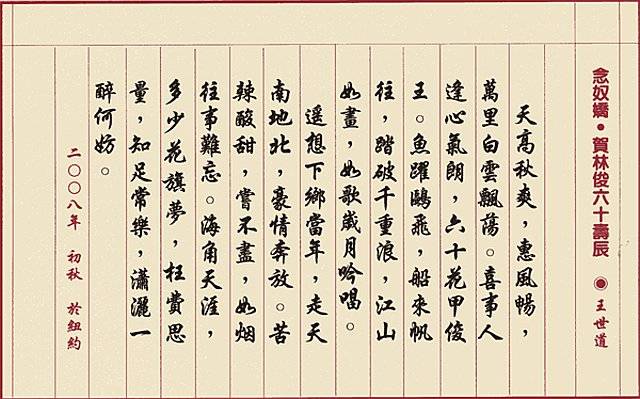 念奴嬌·賀林俊六十壽辰 ◉ 王世道
天高秋爽，惠風暢，
萬里白雲飄蕩。喜事人
逢心氣朗，六十花甲俊
王。魚躍鷗飛，船來帆
往，踏破千重浪，江山
如畫，如歌歲月吟唱。
遥想下鄉當年，走天
南地北，豪情奔放。苦
辣酸甜，嘗不盡，如烟
往事難忘。海角天涯，
多少花旗夢，枉費思
量，知足常樂，瀟灑一
醉何妨。
二〇〇八年 初秋 於紐約